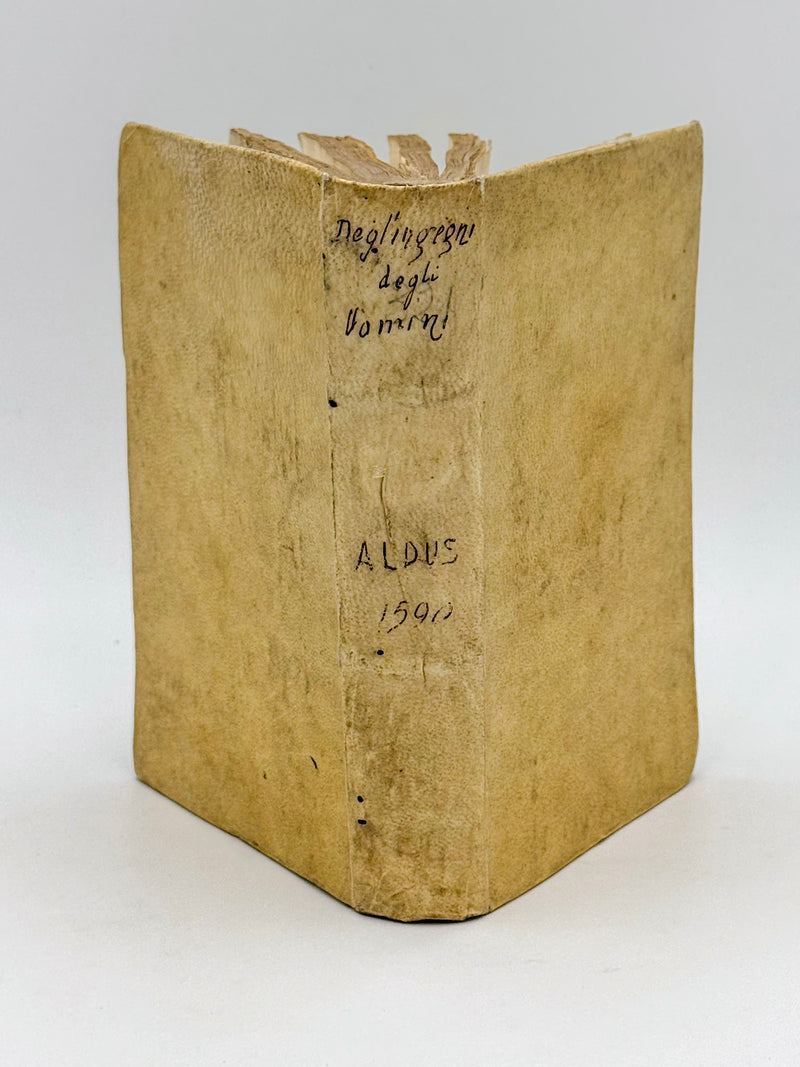 Degl'ingegni
degli
Vomini
ALDUS
1590